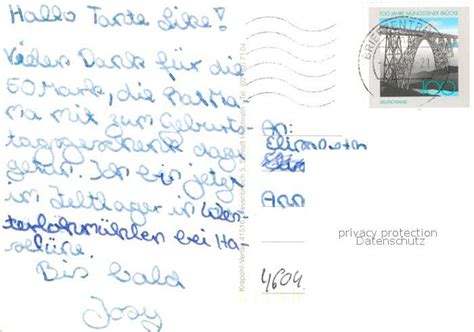 Hallo Tante Elke!
Vielen Dank für die
50 Mark, die Mama
mit zum Geburts-
tagsgeschenk dazu
Ich bin jetzt
im Zeltlager in Wes-
terlohmühlen bei Ha-
selüne.
Bis bald
Josy
100 JAHRE MÜNGSTENER BRÜCKE
DEUTSCHLAND
100
BRIEFZENTRUM
21
An:
Elisabeth
Ann
4604
privacy protection
Datenschutz